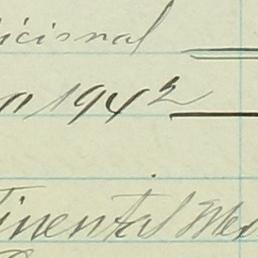 icisnal
n 1942
tinental Me